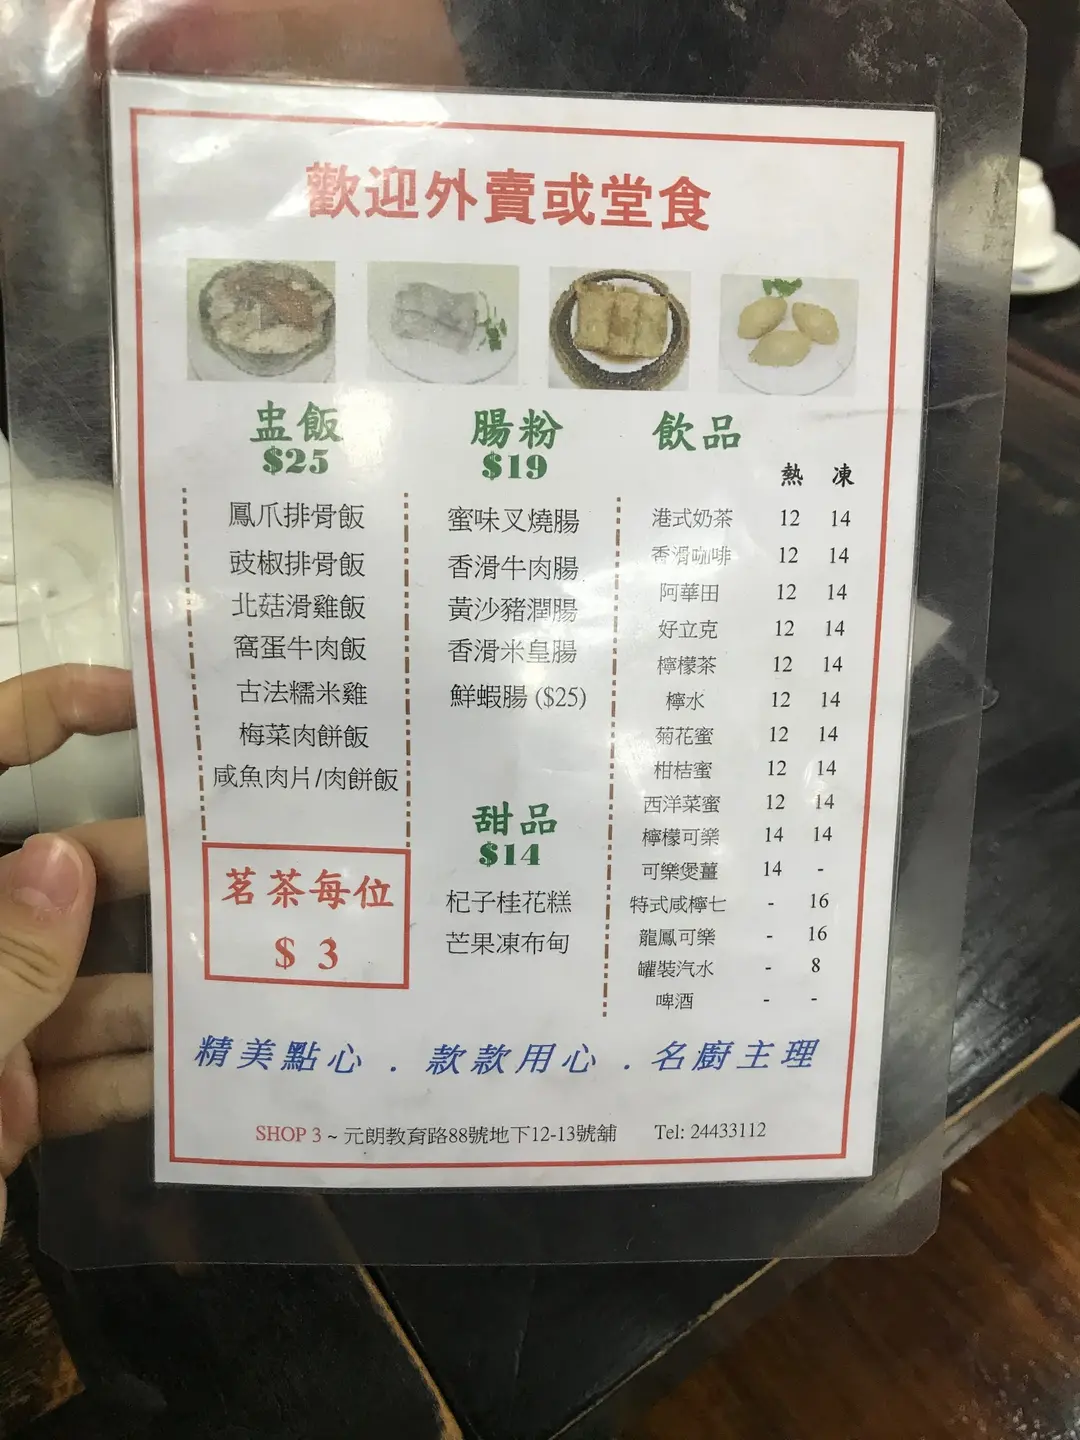 歡迎外賣或堂食
盅飯
$25
鳳爪排骨飯
豉椒排骨飯
北菇滑雞飯
窩蛋牛肉飯
古法糯米雞
梅菜肉餅飯
咸魚肉片/肉餅飯
茗茶每位
$ 3
腸粉
$19
蜜味叉燒腸
香滑牛肉腸
黃沙豬潤腸
香滑米皇腸
鮮蝦腸 ($25)
甜品
$14
杞子桂花糕
芒果凍布甸
飲品
熱 凍
港式奶茶 12 14
香滑咖啡 12 14
阿華田 12 14
好立克 12 14
檸檬茶 12 14
檸水 12 14
菊花蜜 12 14
柑桔蜜 12 14
西洋菜蜜 12 14
檸檬可樂 14 14
可樂煲薑 14 -
特式咸檸七 - 16
龍鳳可樂 - 16
罐裝汽水 - 8
啤酒 - -
精美點心 . 款款用心 . 名廚主理
SHOP 3 ~ 元朗教育路88號地下12-13號舖 Tel: 24433112